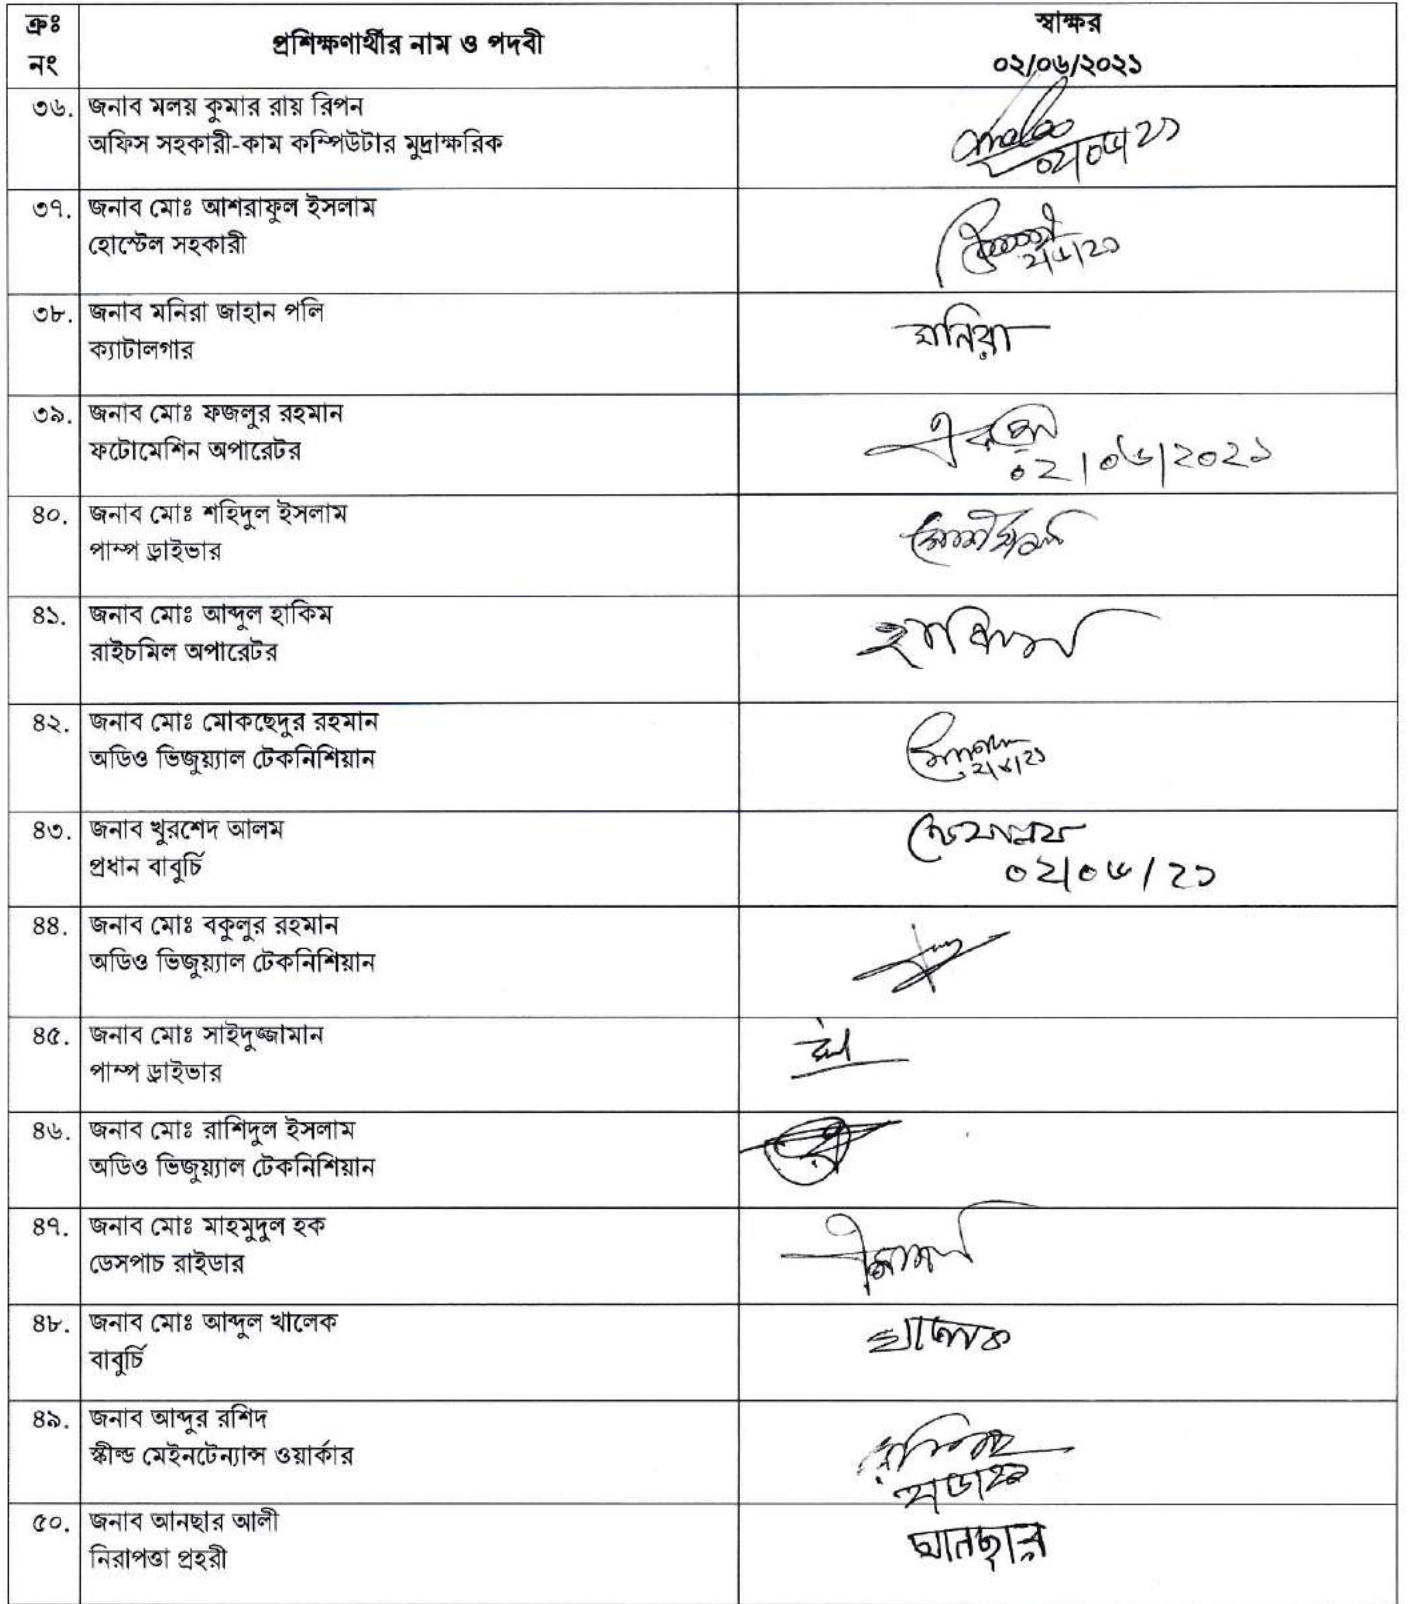 ক্রঃ নং
প্রশিক্ষণার্থীর নাম ও পদবী
স্বাক্ষর
০২/০৬/২০২১
৩৬. জনাব মলয় কুমার রায় রিপন
অফিস সহকারী-কাম কম্পিউটার মুদ্রাক্ষরিক
০২/০৬/২১
৩৭. জনাব মোঃ আশরাফুল ইসলাম
হোস্টেল সহকারী
২/৬/২১
৩৮. জনাব মনিরা জাহান পলি
ক্যাটালগার
মনিরা
৩৯. জনাব মোঃ ফজলুর রহমান
ফটোমেশিন অপারেটর
০২/০৬/২০২১
৪০. জনাব মোঃ শহিদুল ইসলাম
পাম্প ড্রাইভার
৪১. জনাব মোঃ আব্দুল হাকিম
রাইচমিল অপারেটর
হাকিম
৪২. জনাব মোঃ মোকছেদুর রহমান
অডিও ভিজুয়্যাল টেকনিশিয়ান
২/৬/২১
৪৩. জনাব খুরশেদ আলম
প্রধান বাবুর্চি
০২/০৬/২১
৪৪. জনাব মোঃ বকুলুর রহমান
অডিও ভিজুয়্যাল টেকনিশিয়ান
৪৫. জনাব মোঃ সাইদুজ্জামান
পাম্প ড্রাইভার
৪৬. জনাব মোঃ রাশিদুল ইসলাম
অডিও ভিজুয়্যাল টেকনিশিয়ান
৪৭. জনাব মোঃ মাহমুদুল হক
ডেসপাচ রাইডার
৪৮. জনাব মোঃ আব্দুল খালেক
বাবুর্চি
খালেক
৪৯. জনাব আব্দুর রশিদ
স্কীল্ড মেইনটেন্যান্স ওয়ার্কার
৫০. জনাব আনছার আলী
নিরাপত্তা প্রহরী
আনছার